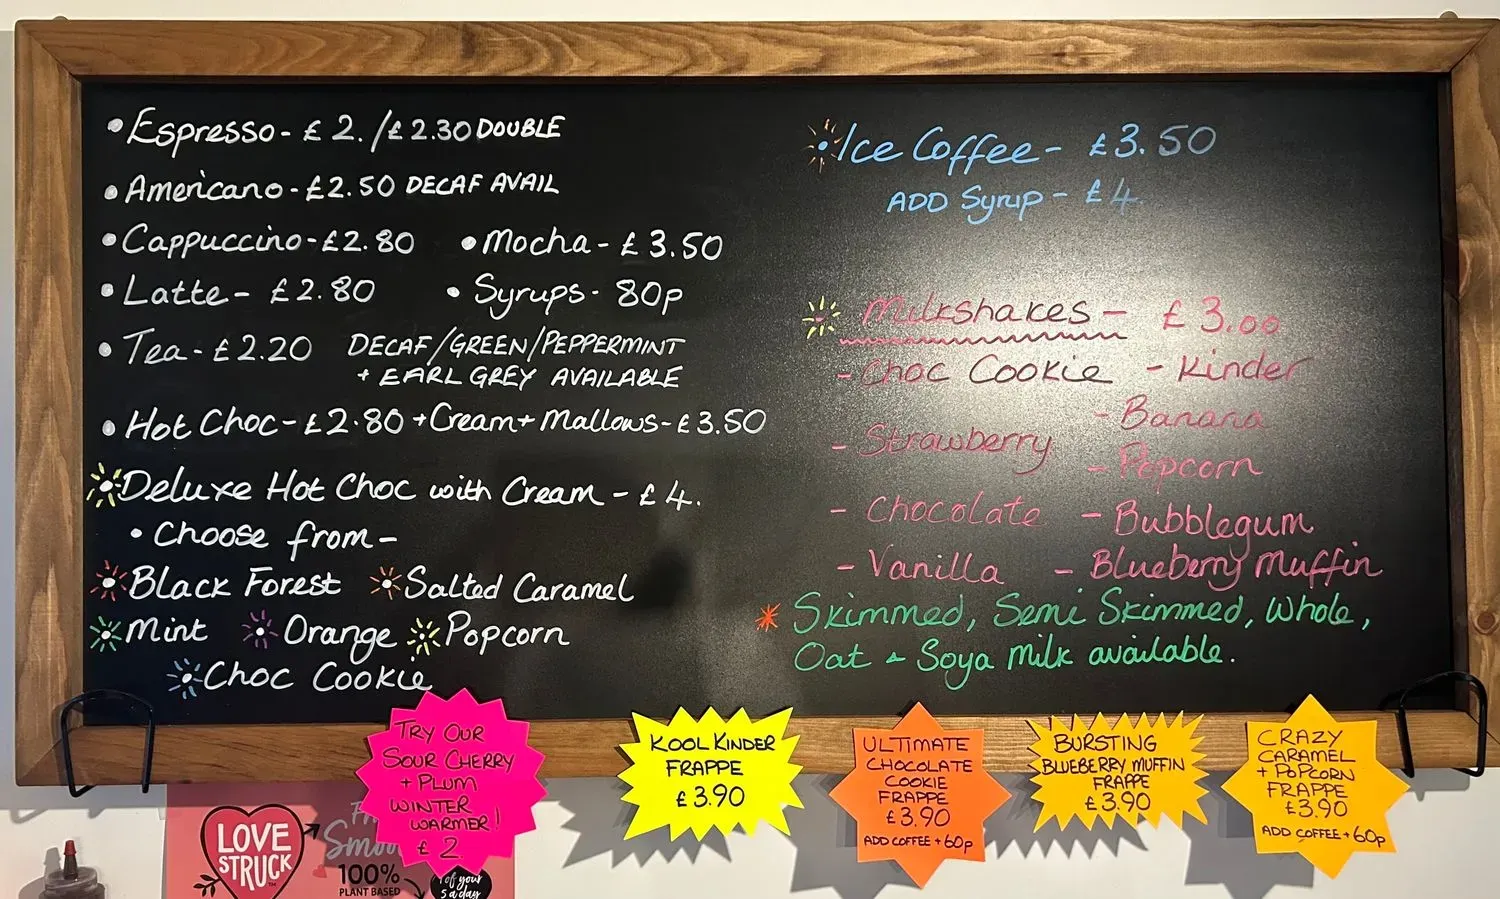 • Espresso - £2. / £2.30 DOUBLE
• Americano - £2.50 DECAF AVAIL
• Cappuccino - £2.80 • Mocha - £3.50
• Latte - £2.80 • Syrups - 80p
• Tea - £2.20 DECAF/GREEN/PEPPERMINT
+ EARL GREY AVAILABLE
• Hot Choc - £2.80 + Cream + Mallows - £3.50
Deluxe Hot Choc with Cream - £4.
• Choose from -
Black Forest Salted Caramel
Mint Orange Popcorn
Choc Cookie
Ice Coffee - £3.50
ADD Syrup - £4
Milkshakes - £3.00
- Choc Cookie - Kinder
- Banana
- Strawberry
- Popcorn
- Chocolate - Bubblegum
- Vanilla - Blueberry Muffin
Skimmed, Semi Skimmed, Whole,
Oat & Soya Milk available.
TRY OUR
SOUR CHERRY
+ PLUM
WINTER
WARMER!
£2
KOOL KINDER
FRAPPE
£3.90
ULTIMATE
CHOCOLATE
COOKIE
FRAPPE
£3.90
ADD COFFEE + 60p
BURSTING
BLUEBERRY MUFFIN
FRAPPE
£3.90
CRAZY
CARAMEL
+ POPCORN
FRAPPE
£3.90
ADD COFFEE + 60p
LOVE
STRUCK™
100%
PLANT BASED
of your
5 a day